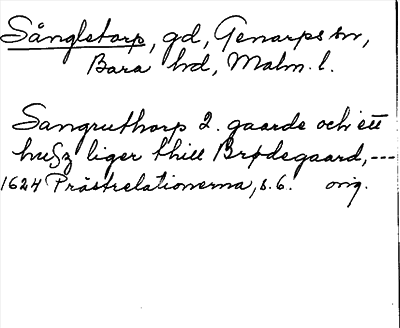 Sångletorp, gd, Genarps sn,
Bara hd, Malm. l.
Sangruthorp 2. gaarde och ett
husz liger thill Brødegaard, ---
1624 Prästrelationerna, s. 6. orig.